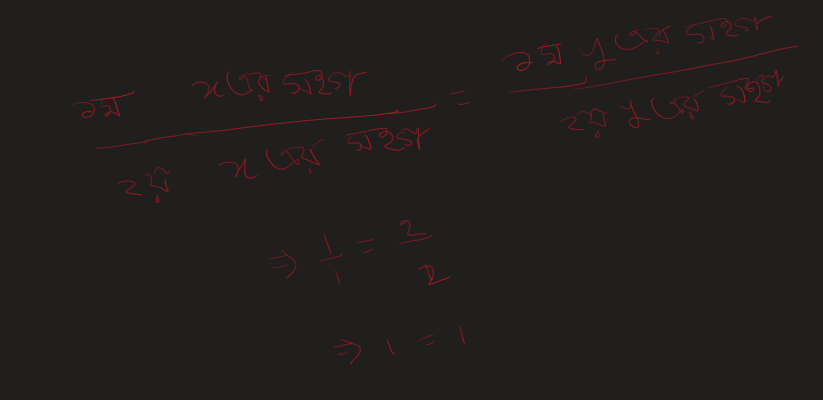 ১ম x এর সহগ / ২য় x এর সহগ = ১ম y এর সহগ / ২য় y এর সহগ
⇒ 1/1 = 2/2
⇒ 1 = 1